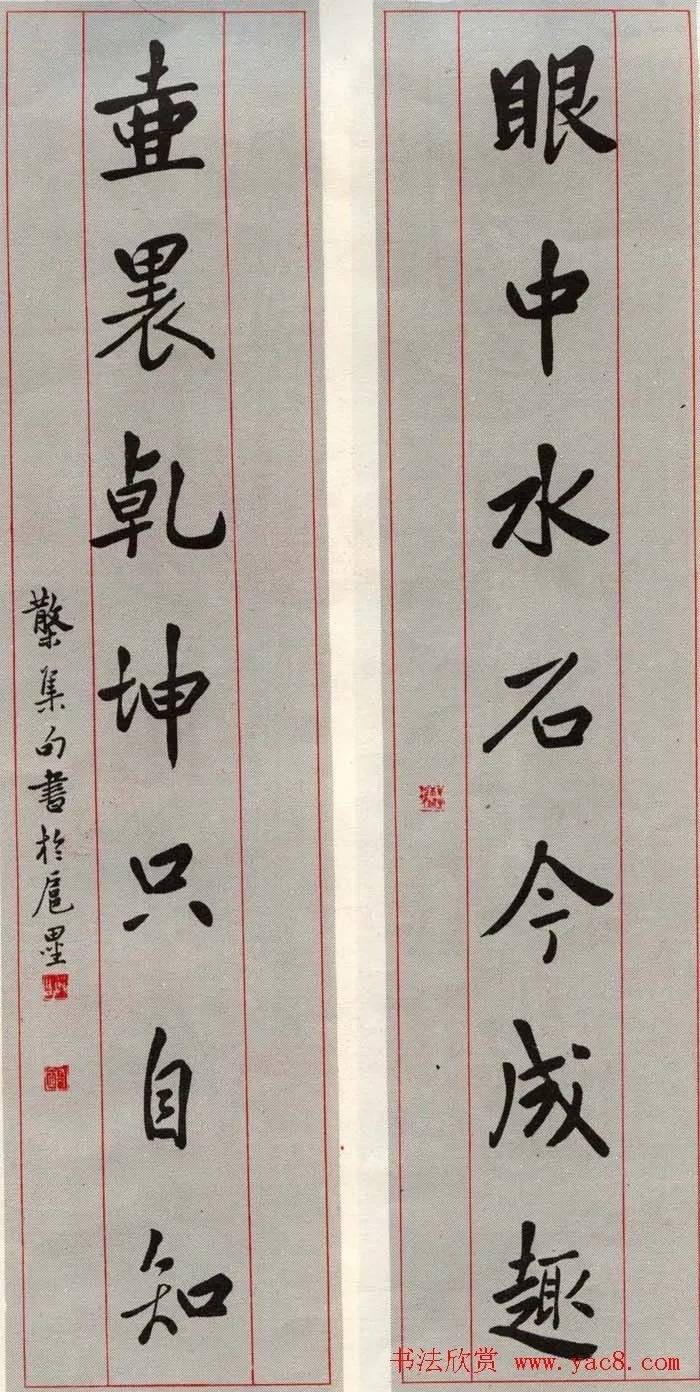 眼中水石今成趣
壷裏乾坤只自知
集句書於扈壘
书法欣赏 www.yac8.com